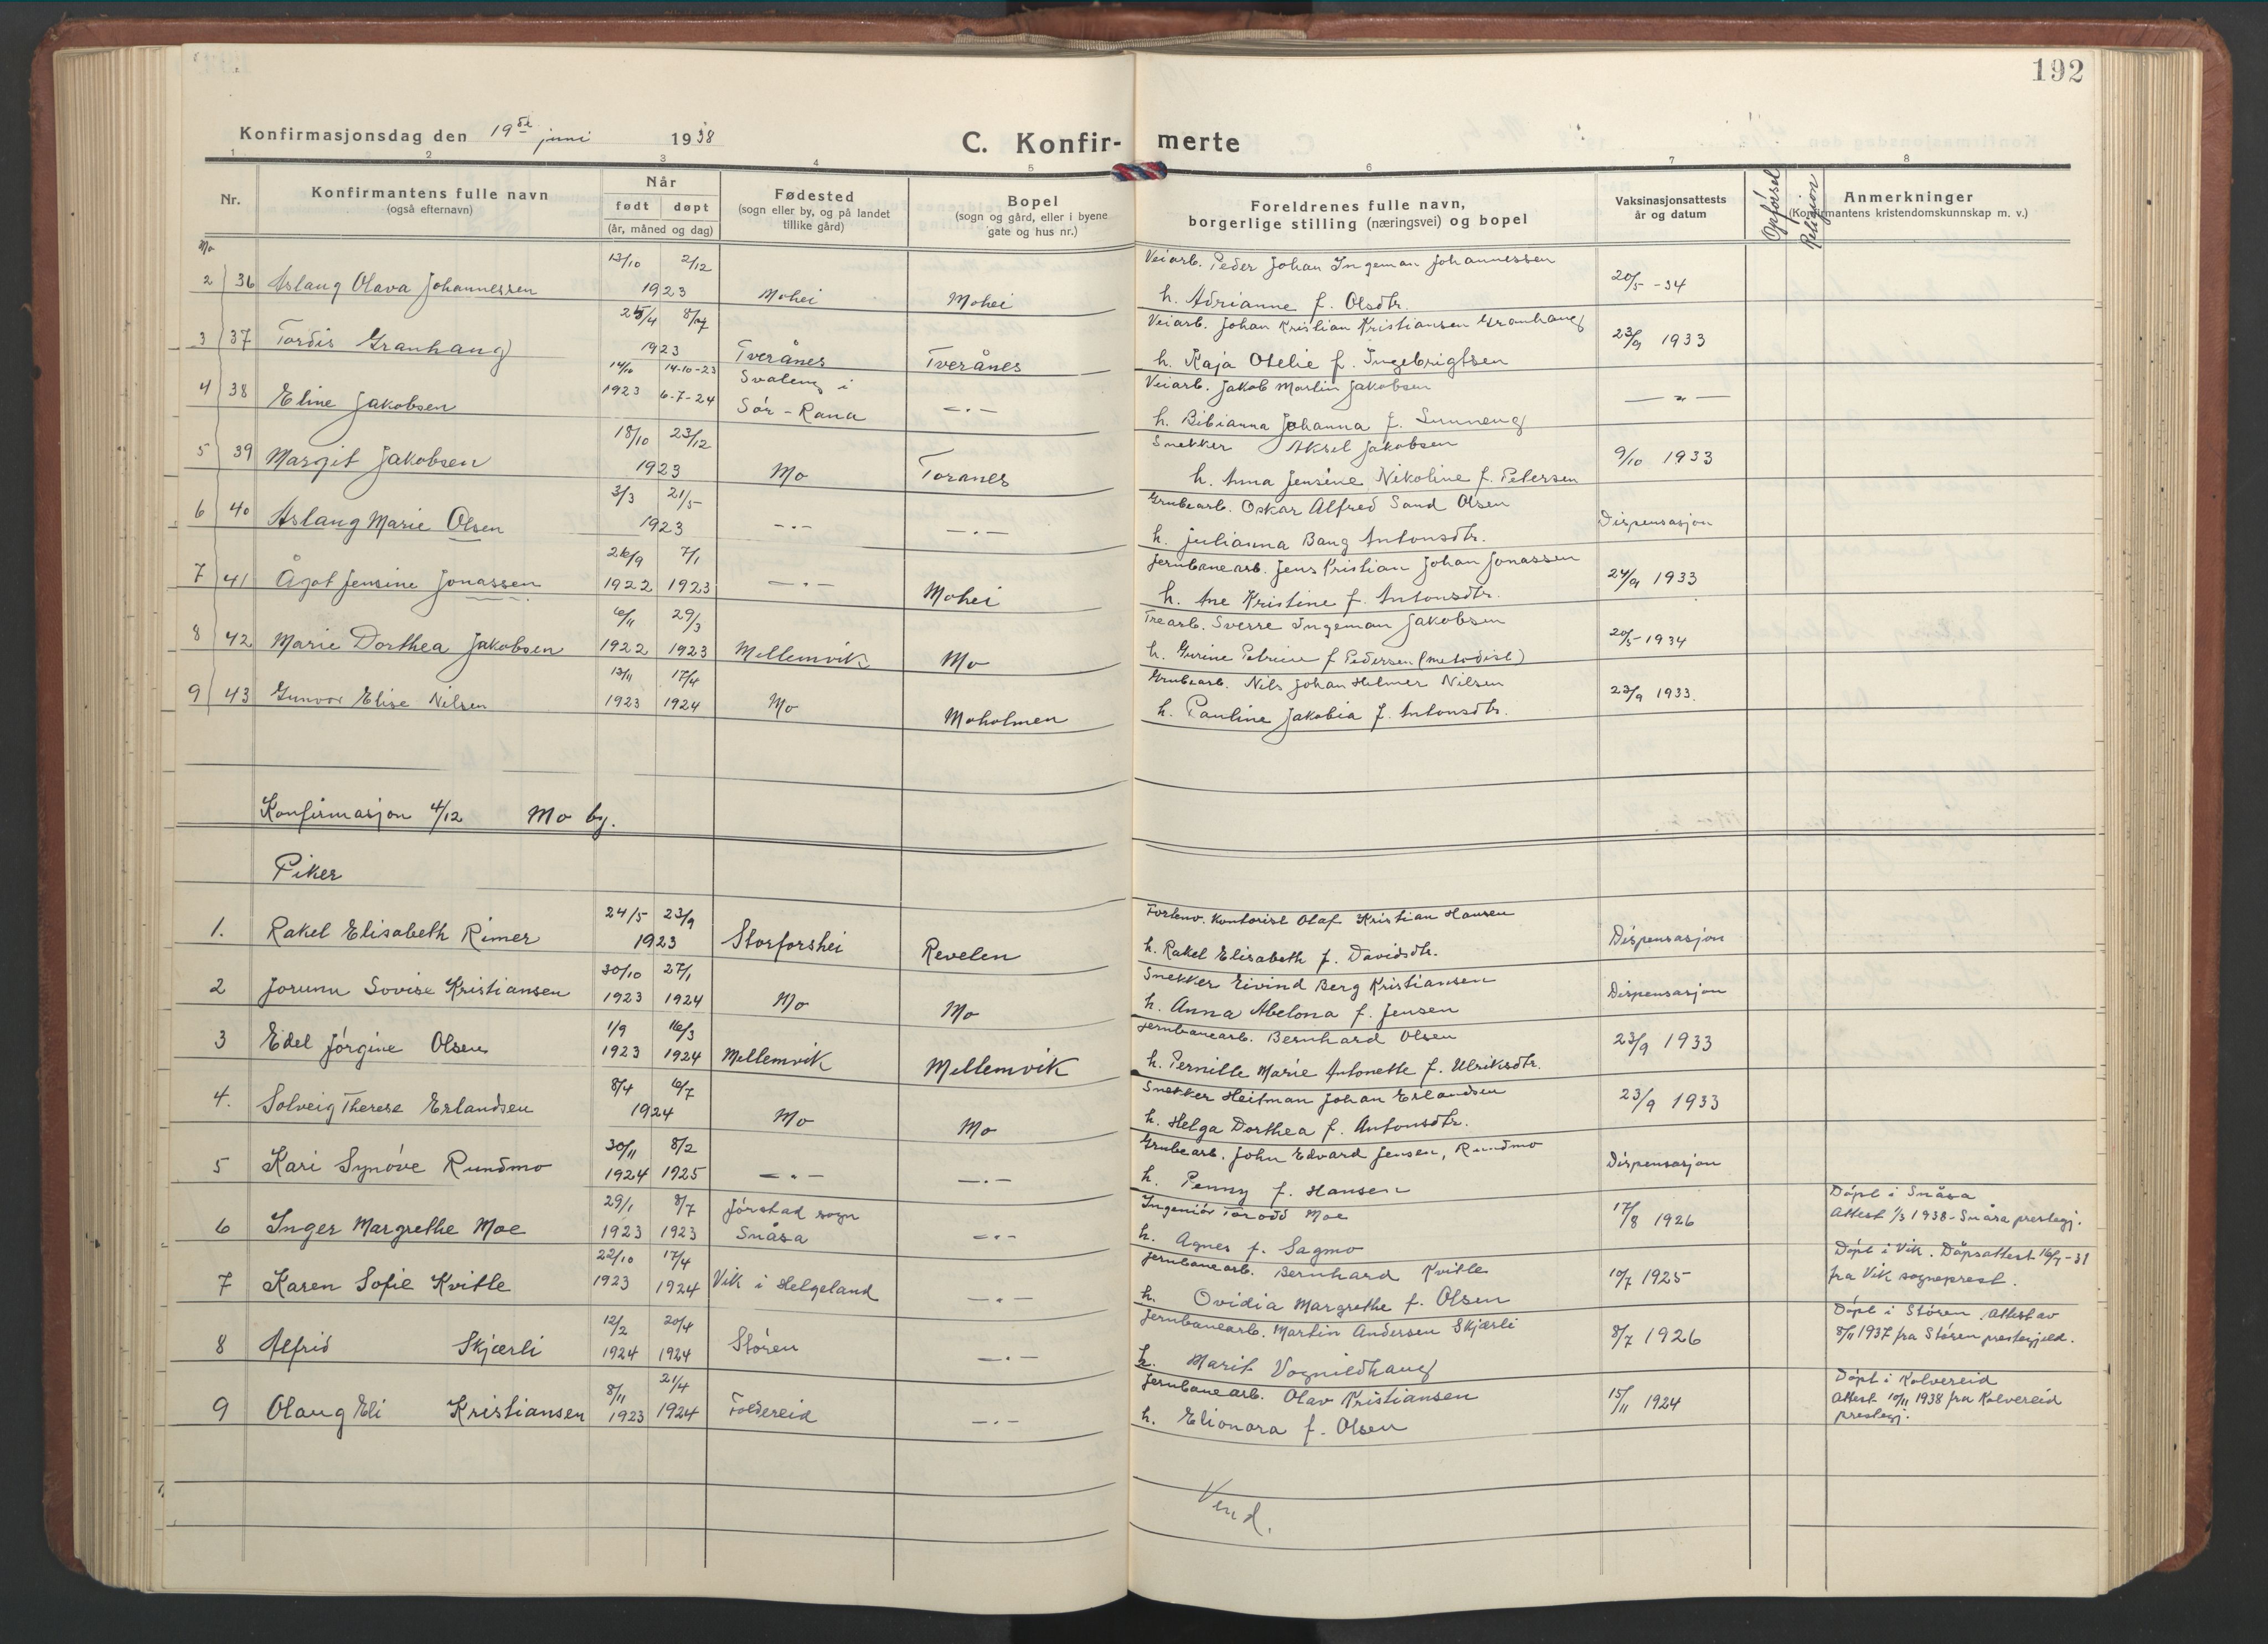 192
Konfirmasjonsdag den 19de juni 1938
C. Konfir- merte
1 2 3 4 5 6 7 8
Nr.
Konfirmantens fulle navn
(også efternavn)
Når
født døpt
(år, måned og dag)
Fødested
(sogn eller by, og på landet
tillike gård)
Bopel
(sogn og gård, eller i byene
gate og hus nr.)
Foreldrenes fulle navn,
borgerlige stilling (næringsvei) og bopel
Vaksinasjonsattests
år og datum
Opførsel
Religion
Anmerkninger
(Konfirmantens kristendomskunnskap m. v.)
Mo
13/10 2/12 Veiarb. Peder Johan Ingeman Johannessen
2 36 Aslaug Olava Johannessen 1923 Mohei Mohei h. Adrianne f. Olsdtr. 20/5 -34
25/4 8/7 Veiarb. Johan Kristian Kristiansen Granhaug
3 37 Tordis Granhaug 1923 Tverånes Tverånes h. Kaja Otelie f. Ingebrigtsen 23/9 1933
14/10 14-10-23 Svaleng i Veiarb. Jakob Martin Jakobsen
4 38 Eline Jakobsen 1923 6-7-24 Sør-Rana —.— h. Bibianna Johanna f. Sunneng — " —
18/10 23/12 Snekker Aksel Jakobsen
5 39 Margit Jakobsen 1923 Mo Toranes h. Anna Jensine Nikoline f. Petersen 9/10 1933
3/3 21/5 Grubearb. Oskar Alfred Sand Olsen
6 40 Aslaug Marie Olsen 1923 —.— —.— h. Julianna Bang Antonsdtr. Dispensasjon
26/9 7/1 Jernbanearb. Jens Kristian Johan Jonassen
7 41 Ågot Jensine Jonassen 1922 1923 —.— Mohei h. Ane Kristine f. Antonsdtr. 24/9 1933
6/11 29/3 Trearb. Sverre Ingeman Jakobsen
8 42 Marie Dorthea Jakobsen 1922 1923 Mellemvik Mo h. Gurine Petrine f Pedersen (metodist) 20/5-1934
13/11 17/4 Grubearb. Nils Johan Helmer Nilsen
9 43 Gunvor Elise Nilsen 1923 1924 Mo Moholmen h. Pauline Jakobia f. Antonsdtr. 23/9 1933.
Konfirmasjon 4/12 Mo by.
Piker
24/5 23/9 Forhenv. Kontorist Olaf Kristian Hansen
1. Rakel Elisabeth Rimer 1923 Storforshei Revelen h. Rakel Elisabeth f. Davidsdtr. Dispensasjon
30/10 27/1 Snekker Eivind Berg Kristiansen
2 Jorunn Lovise Kristiansen 1923 1924 Mo Mo h. Anna Abelona f. Jensen Dispensasjon
1/9 16/3 Jernbanearb. Bernhard Olsen
3 Edel Jørgine Olsen 1923 1924 Mellemvik Mellemvik h. Pernille Marie Antonette f. Ulriksdtr. 23/9 1933
8/4 6/7 Snekker Heitman Johan Erlandsen
4. Solveig Therese Erlandsen 1924 Mo Mo h. Helga Dorthea f. Antonsdtr. 23/9 1933
30/11 8/2 Grubearb. John Edvard Jensen, Rundmo
5 Kari Synøve Rundmo 1924 1925 —.— —.— h. Penny f. Hansen Dispensasjon
29/1 8/7 Jørstad sogn Ingeniør Torodd Moe Døpt i Snåsa
6 Inger Margrethe Moe 1923 1923 Snåsa —.— h. Agnes f. Sagmo 17/8 1926 Attest 1/3 1938 - Snåsa prestegj.
22/10 17/4 Jernbanearb. Bernhard Kvitle Døpt i Vik. Dåpsattest 16/7-31
7 Karen Sofie Kvitle 1923 1924 Vik i Helgeland —.— h. Ovidia Margrethe f. Olsen 10/7 1925 fra Vik sogneprest.
12/2 20/4 Jernbanearb. Martin Andersen Skjærli Døpt i Støren. Attest av
8 Alfrid Skjærli 1924 1924 Støren —.— h. Marit Vognildhaug 8/7 1926 8/11 1937 fra Støren prestegjeld.
8/11 21/4 Jernbanearb. Olav Kristiansen Døpt i Kolvereid
9 Olaug Eli Kristiansen 1923 1924 Foldereid —.— h. Elionora f. Olsen 15/11 1924 Attest 10/11 1938 fra Kolvereid
prestegj.
Vend.